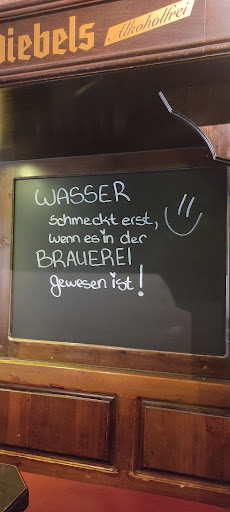 iebels Alkoholfrei
WASSER
schmeckt erst,
wenn es in der
BRAUEREI
gewesen ist!